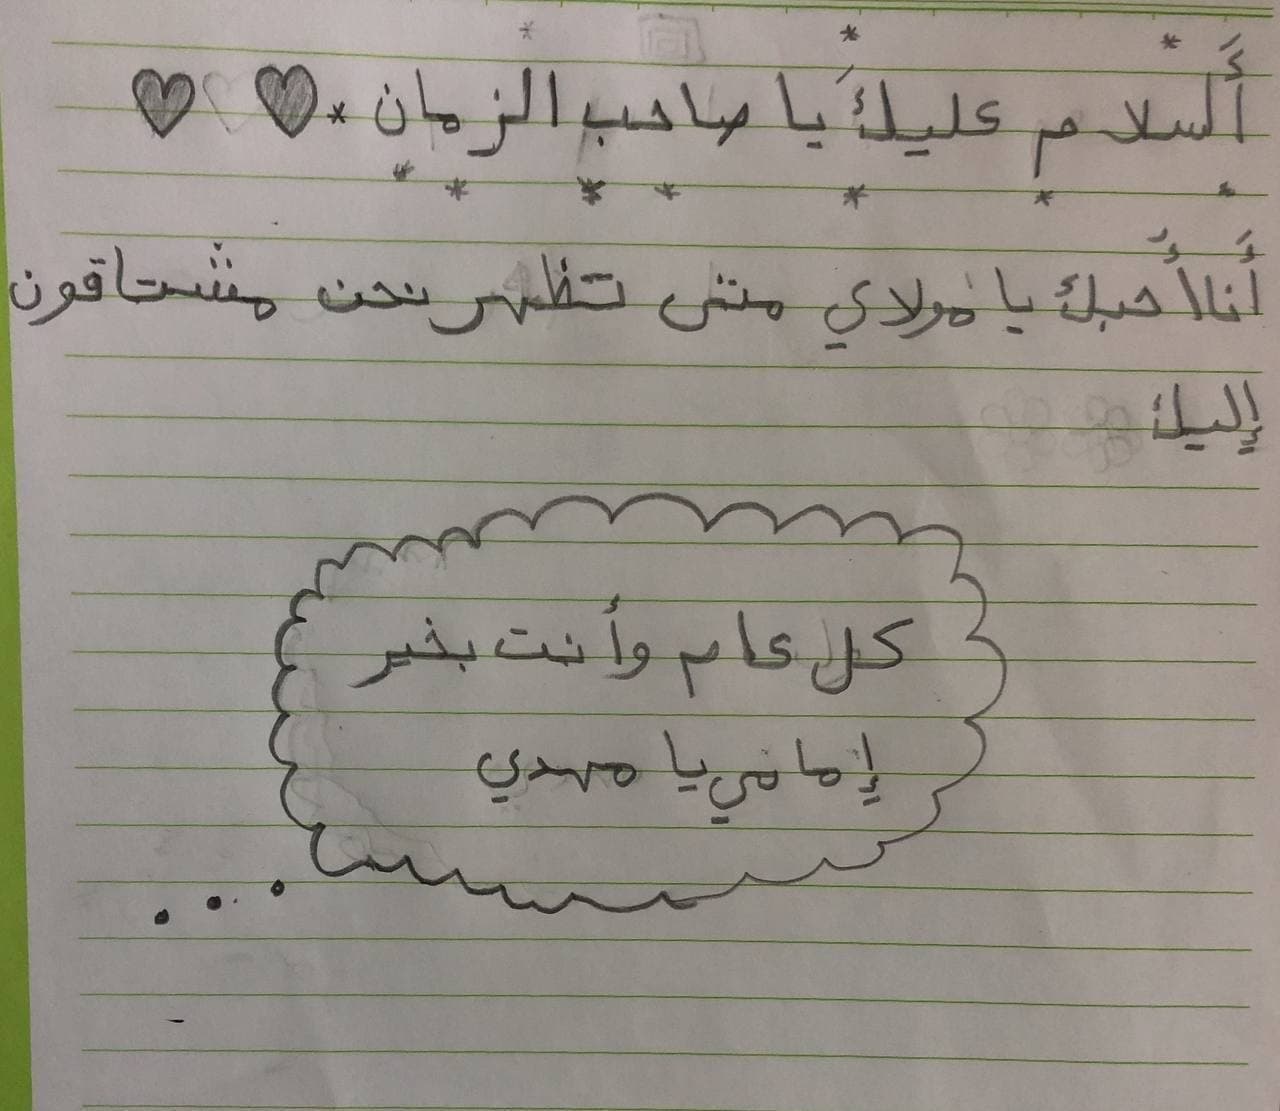 أَلسلام عليكَ يا صاحب الزمان
أَنا أُحبك يا مولاي متى تظهر نحن مشتاقون
إليك
كل عام وأنت بخير
إمامي يا مهدي